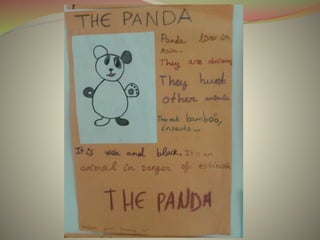 THE PANDA
Panda lives in
Asia.
They are
They hunt
other animals
They eat bamboo,
insects...
It is white and black. It is an
animal in danger of
THE PANDA